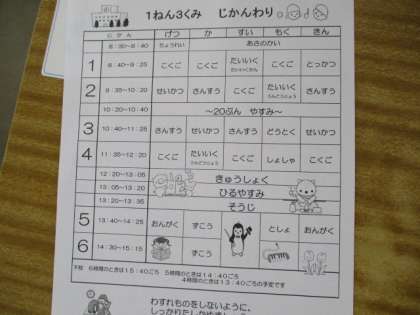 1ねん3くみ じかんわり
じかん げつ か すい もく きん
8:30~8:40 ちょうれい あさのかい
1 8:40~9:25 こくご こくご たいいく こくご とっかつ
2 9:35~10:20 せいかつ さんすう こくご たいいく さんすう
10:20~10:40 ~20ぷん やすみ~
3 10:40~11:25 さんすう せいかつ さんすう どうとく せいかつ
4 11:35~12:20 こくご たいいく こくご しょしゃ こくご
12:20~13:05 きゅうしょく
13:05~13:20 ひるやすみ
13:20~13:35 そうじ
5 13:40~14:25 おんがく ずこう としょ おんがく
6 14:30~15:15 ずこう
下校 6時間のときは15:40ごろ 5時間のときは14:40ごろ
4時間のときは13:40ごろの予定です
わすれものをしないように、